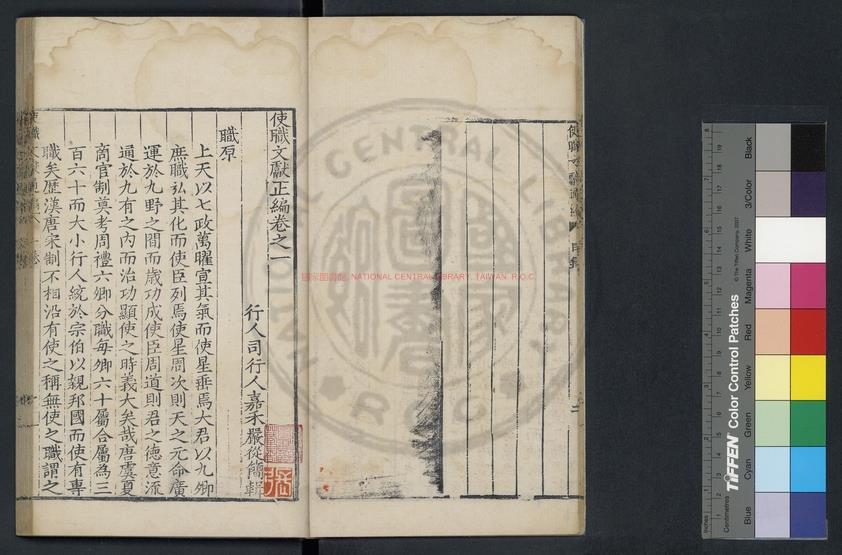 使職文獻正編卷之一
行人司行人嘉禾嚴從簡輯
職原
上天以七政萬曜宣其氣而使星垂焉大君以九卿
庶職弘其化而使臣列焉使星周次則天之元命廣
運於九野之間而歳功成使臣周道則君之德意流
通於九有之內而治功顯使之時義大矣哉唐虞夏
商官制莫考周禮六卿分職每卿六十屬合屬為三
百六十而大小行人統於宗伯以親邦國而使有專
職矣歷漢唐宋制不相沿有使之稱無使之職謂之
國家圖書館, NATIONAL CENTRAL LIBRARY, TAIWAN. R.O.C
TIFFEN Color Control Patches
© The Tiffen Company, 2007
Centimetres
Inches
Blue
Cyan
Green
Yellow
Red
Magenta
White
3/Color
Black